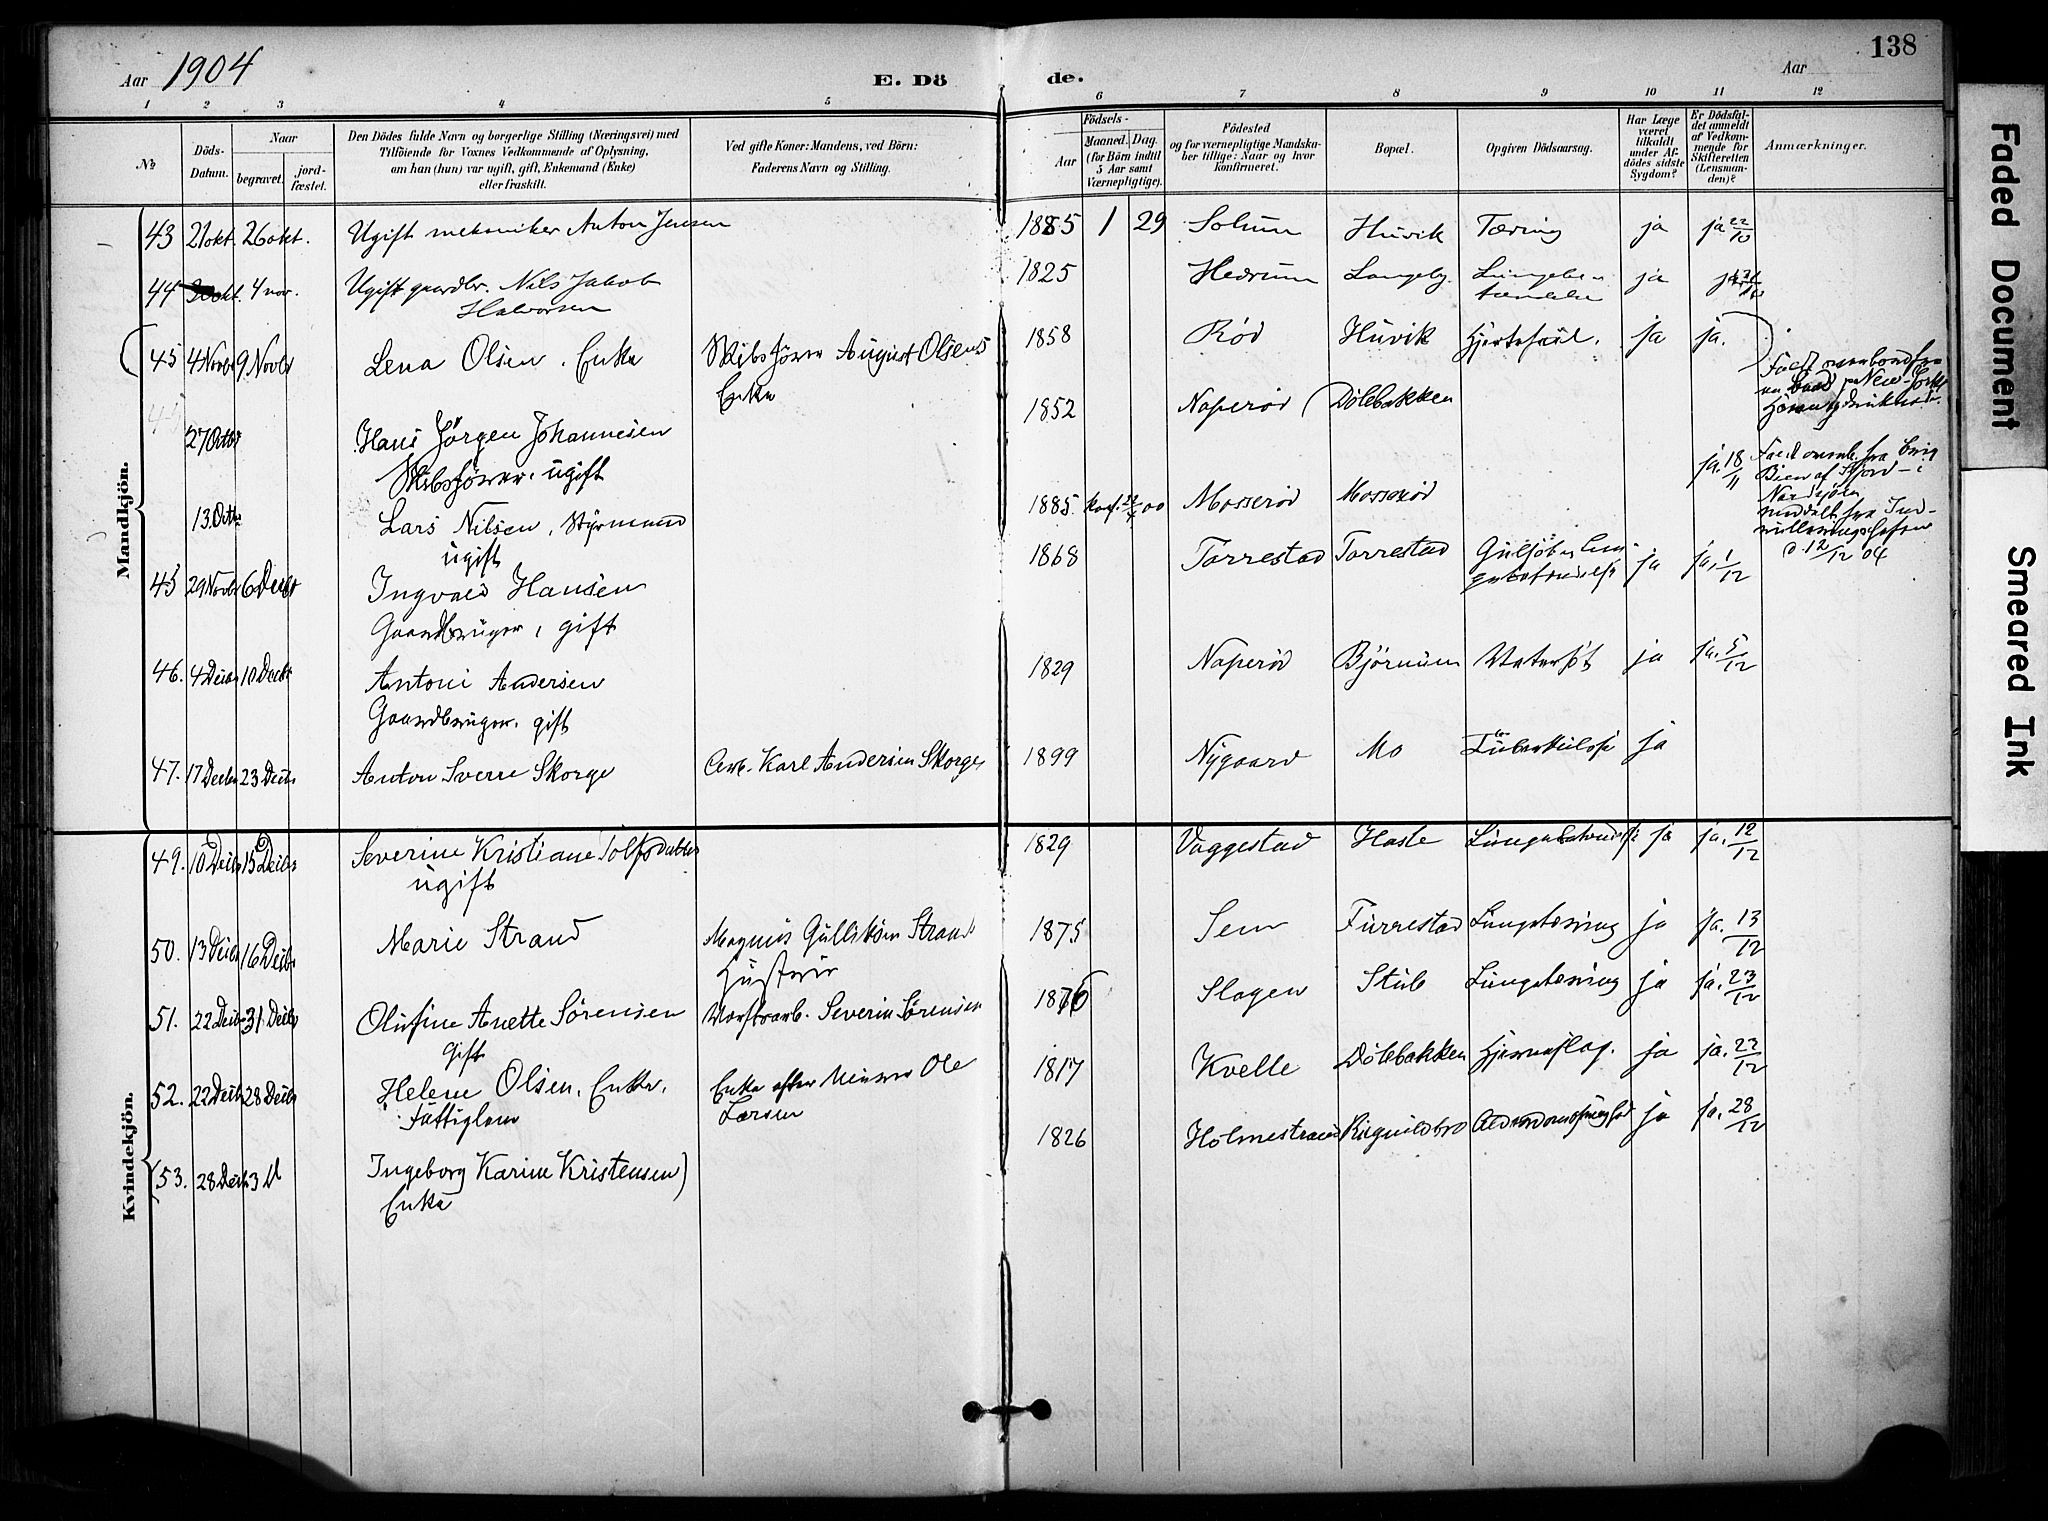 Aar 1904
E. Dö
de.
Aar
138
1 2 3 4 5
6 7 8 9 10 11 12
No
Döds-
Datum.
Naar
begravet.
jord-
fæstet.
Den Dödes fulde Navn og borgerlige Stilling (Næringsvei) med
Tilföiende for Voxnes Vedkommende af Oplysning,
om han (hun) var ugift, gift, Enkemand (Enke)
eller fraskilt.
Ved gifte Koner: Mandens, ved Börn:
Faderens Navn og Stilling.
Födsels-
Aar
Maaned.
Dag.
(for Börn indtil
5 Aar samt
Værnepligtige).
Födested
og for værnepligtige Mandska-
ber tillige: Naar og hvor
konfirmeret.
Bopæl.
Opgiven Dödsaarsag.
Har Læge
været
tilkaldt
under Af-
dödes sidste
Sygdom?
Er Dödsfal-
det anmeldt
af Vedkom-
mende for
Skifteretten
(Lensman-
den)?
Anmærkninger.
Mandkjön.
43 21 okt. 26 okt. Ugift mekaniker Anton Jensen 1885 1 29 Solum Husvik Tæring ja ja 22/10
44 4 nov. Ugift gaardbr. Nils Jakob
Halvorsen
1825 Hedrum Langeby ja
45 4 Novbr 9 Novbr Lena Olsen. Enke Skibsförer August Olsens
Enke
1858 Röd Husvik Hjertefeil. ja ja.
27 Octbr Hans Jörgen Johannesen
Skibsförer. ugift
1852 Naperöd Dölebakken
Faldt overbord fra
New York
13. Octbr Lars Nilsen, Styrmand
ugift
1885. Konf. 00 Mosseröd Mosseröd ja. 18/11
Faldt overb. fra Brig
Nordsjöen
meddelt fra Ind-
rulleringschefen
d. 12/12 04
45 29 Novbr 6 Decbr Ingvald Hansen
Gaardbruger, gift
1868 Torrestad Torrestad ja ja, 1/12
46. 4 Decbr 10 Decbr Antoni Andersen
Gaardbruger. gift
1829 Naperöd Björnum Vatersot ja ja. 5/12
47. 17 Decbr 23 Decbr Anton Sverre Skorge Arb. Karl Andersen Skorge 1899 Nygaard Mo Tuberkulose ja
Kvindekjön.
49. 10 Decbr 15 Decbr Severine Kristiane
ugift
1829 Vaggestad Hasle Lungebetændelse ja ja. 12/12
50. 13 Decbr 16 Decbr Marie Strand Magnus Gulliksen Strands
Hustru
1875 Sem Furrestad Lungetæring ja ja. 13/12
51. 22 Decbr 31 Decbr Olufine Anette Sörensen
Gift
Værftsarb. Severin Sörensen 1876 Slagen Stub Lungetæring ja ja. 23/12
52. 22 Decbr 28 Decbr Helene Olsen. Enke.
Fattiglem
Enke efter Murer Ole
Larsen
1817 Kvelle Dölebakken Hjerneslag. ja ja. 22/12
53. 28 Decbr 3 Ingeborg Karine Kristensen
Enke
1826 Holmestrand Ragnildsbro ja ja. 28/12
Faded Document
Smeared Ink